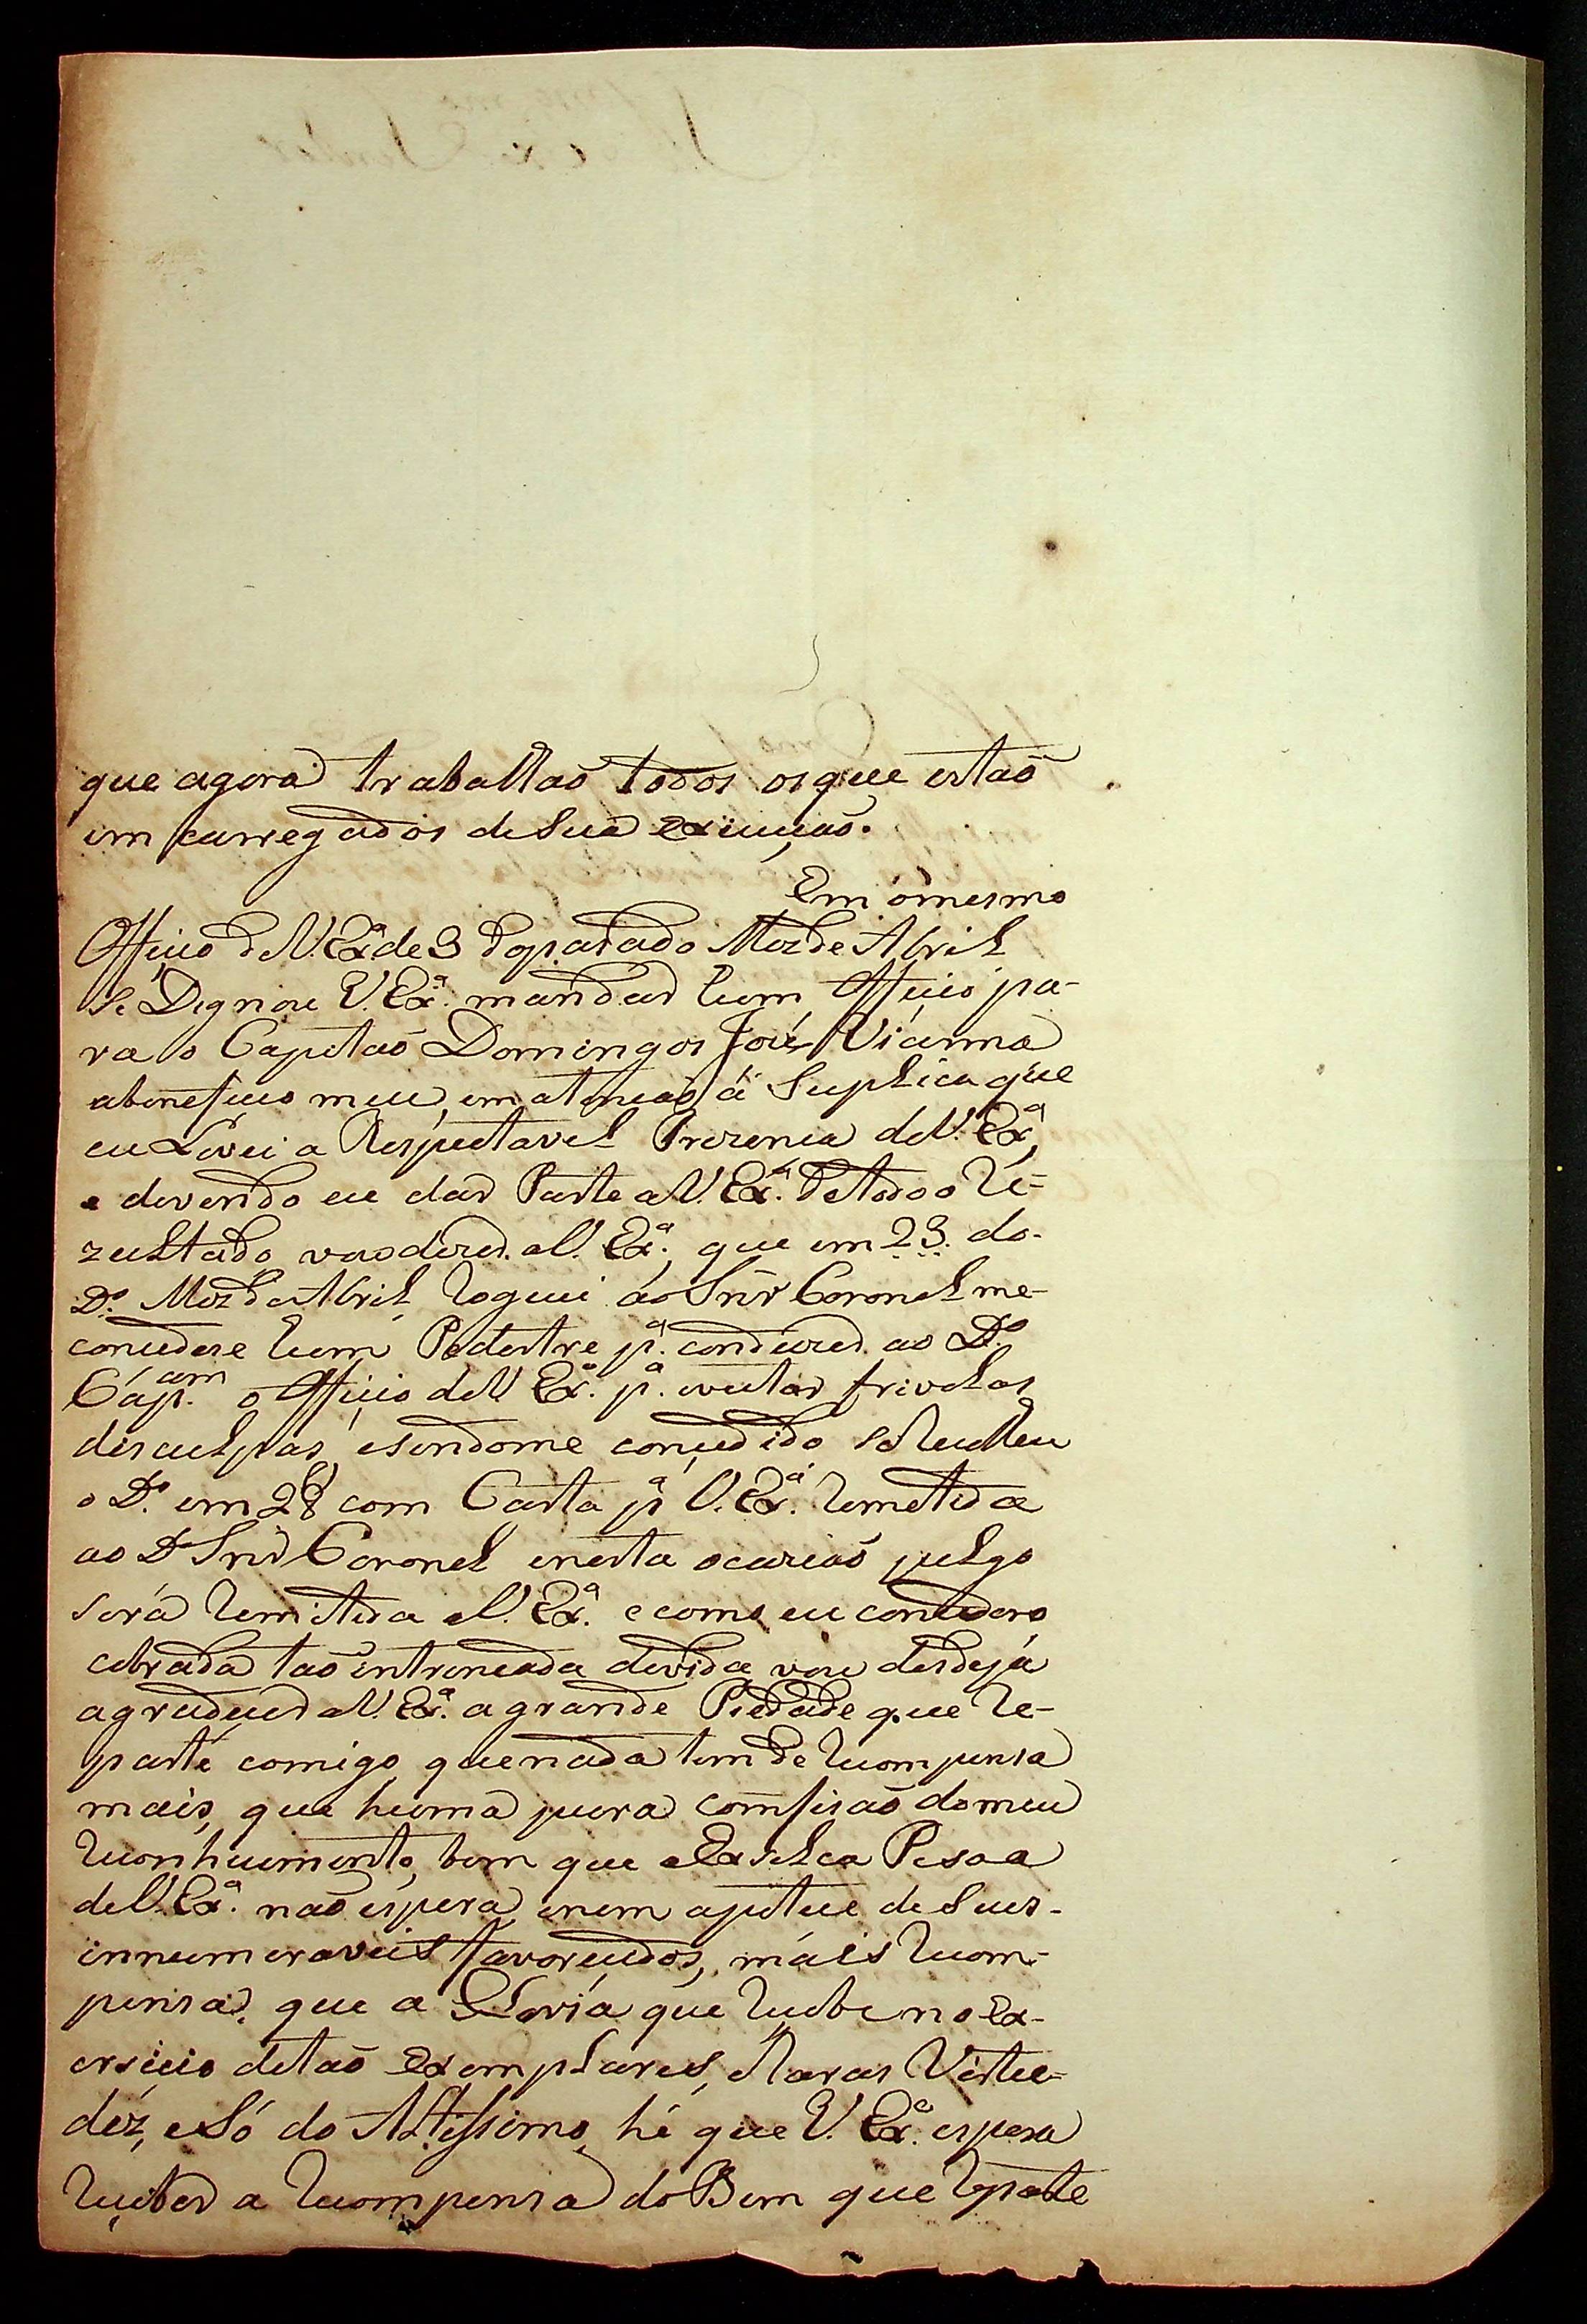 que agora trabalhaõ todos os que estaõ
em carregados de Sua execuçaõ.
Em o mesmo
Officio de V. Exª de 3 do pasado Mez de Abril
Se Dignou V. Exª. mandar hum Officio pa-
ra o Capitaõ Domingos Jozé Vianna
a beneficio meu, em atençaõ á Suplica que
eu Levei a Respeitavel Prezença de V. Exª,
e devendo eu dar Parte a V. Exª. de todo o Re-
zultado vou dizer a V. Exª, que em 23 do
Dº. Mez de Abril Roguei ao Snr Coronel me
concedese hum Pedestre pª. conduzir ao Dº
Capam. o Officio de V. Exª. pª. evitar frivolas
disculpas, e sendome conçedido Se Recolheu
o Dº. em 28 com Carta pª V. Exª. Remetida
ao Dº Snr Coronel e nesta ocaziaõ julgo
será Remitida a V. Exª. e como eu considero
cobrada taõ entroncada divida vou desde já
agradecer a V. Exª. a grande Piedade que Re-
parte comigo, que nada tem de Recompensa
mais, que huma pura comfisaõ do meu
Reconhecimento, bem que a Exselca Pesoa
de V. Exª. naõ espera, e nem apetece de Seus
innumeraveis favorecidos, mais Recom-
pensas, que a Gloria que Recebe no ex-
ersicio de taõ exemplares, e Raras Vertu-
dez, e Só do Altissimo hé que V. Exª. espera
Reçeber a Recompensa do Bem que Reparte